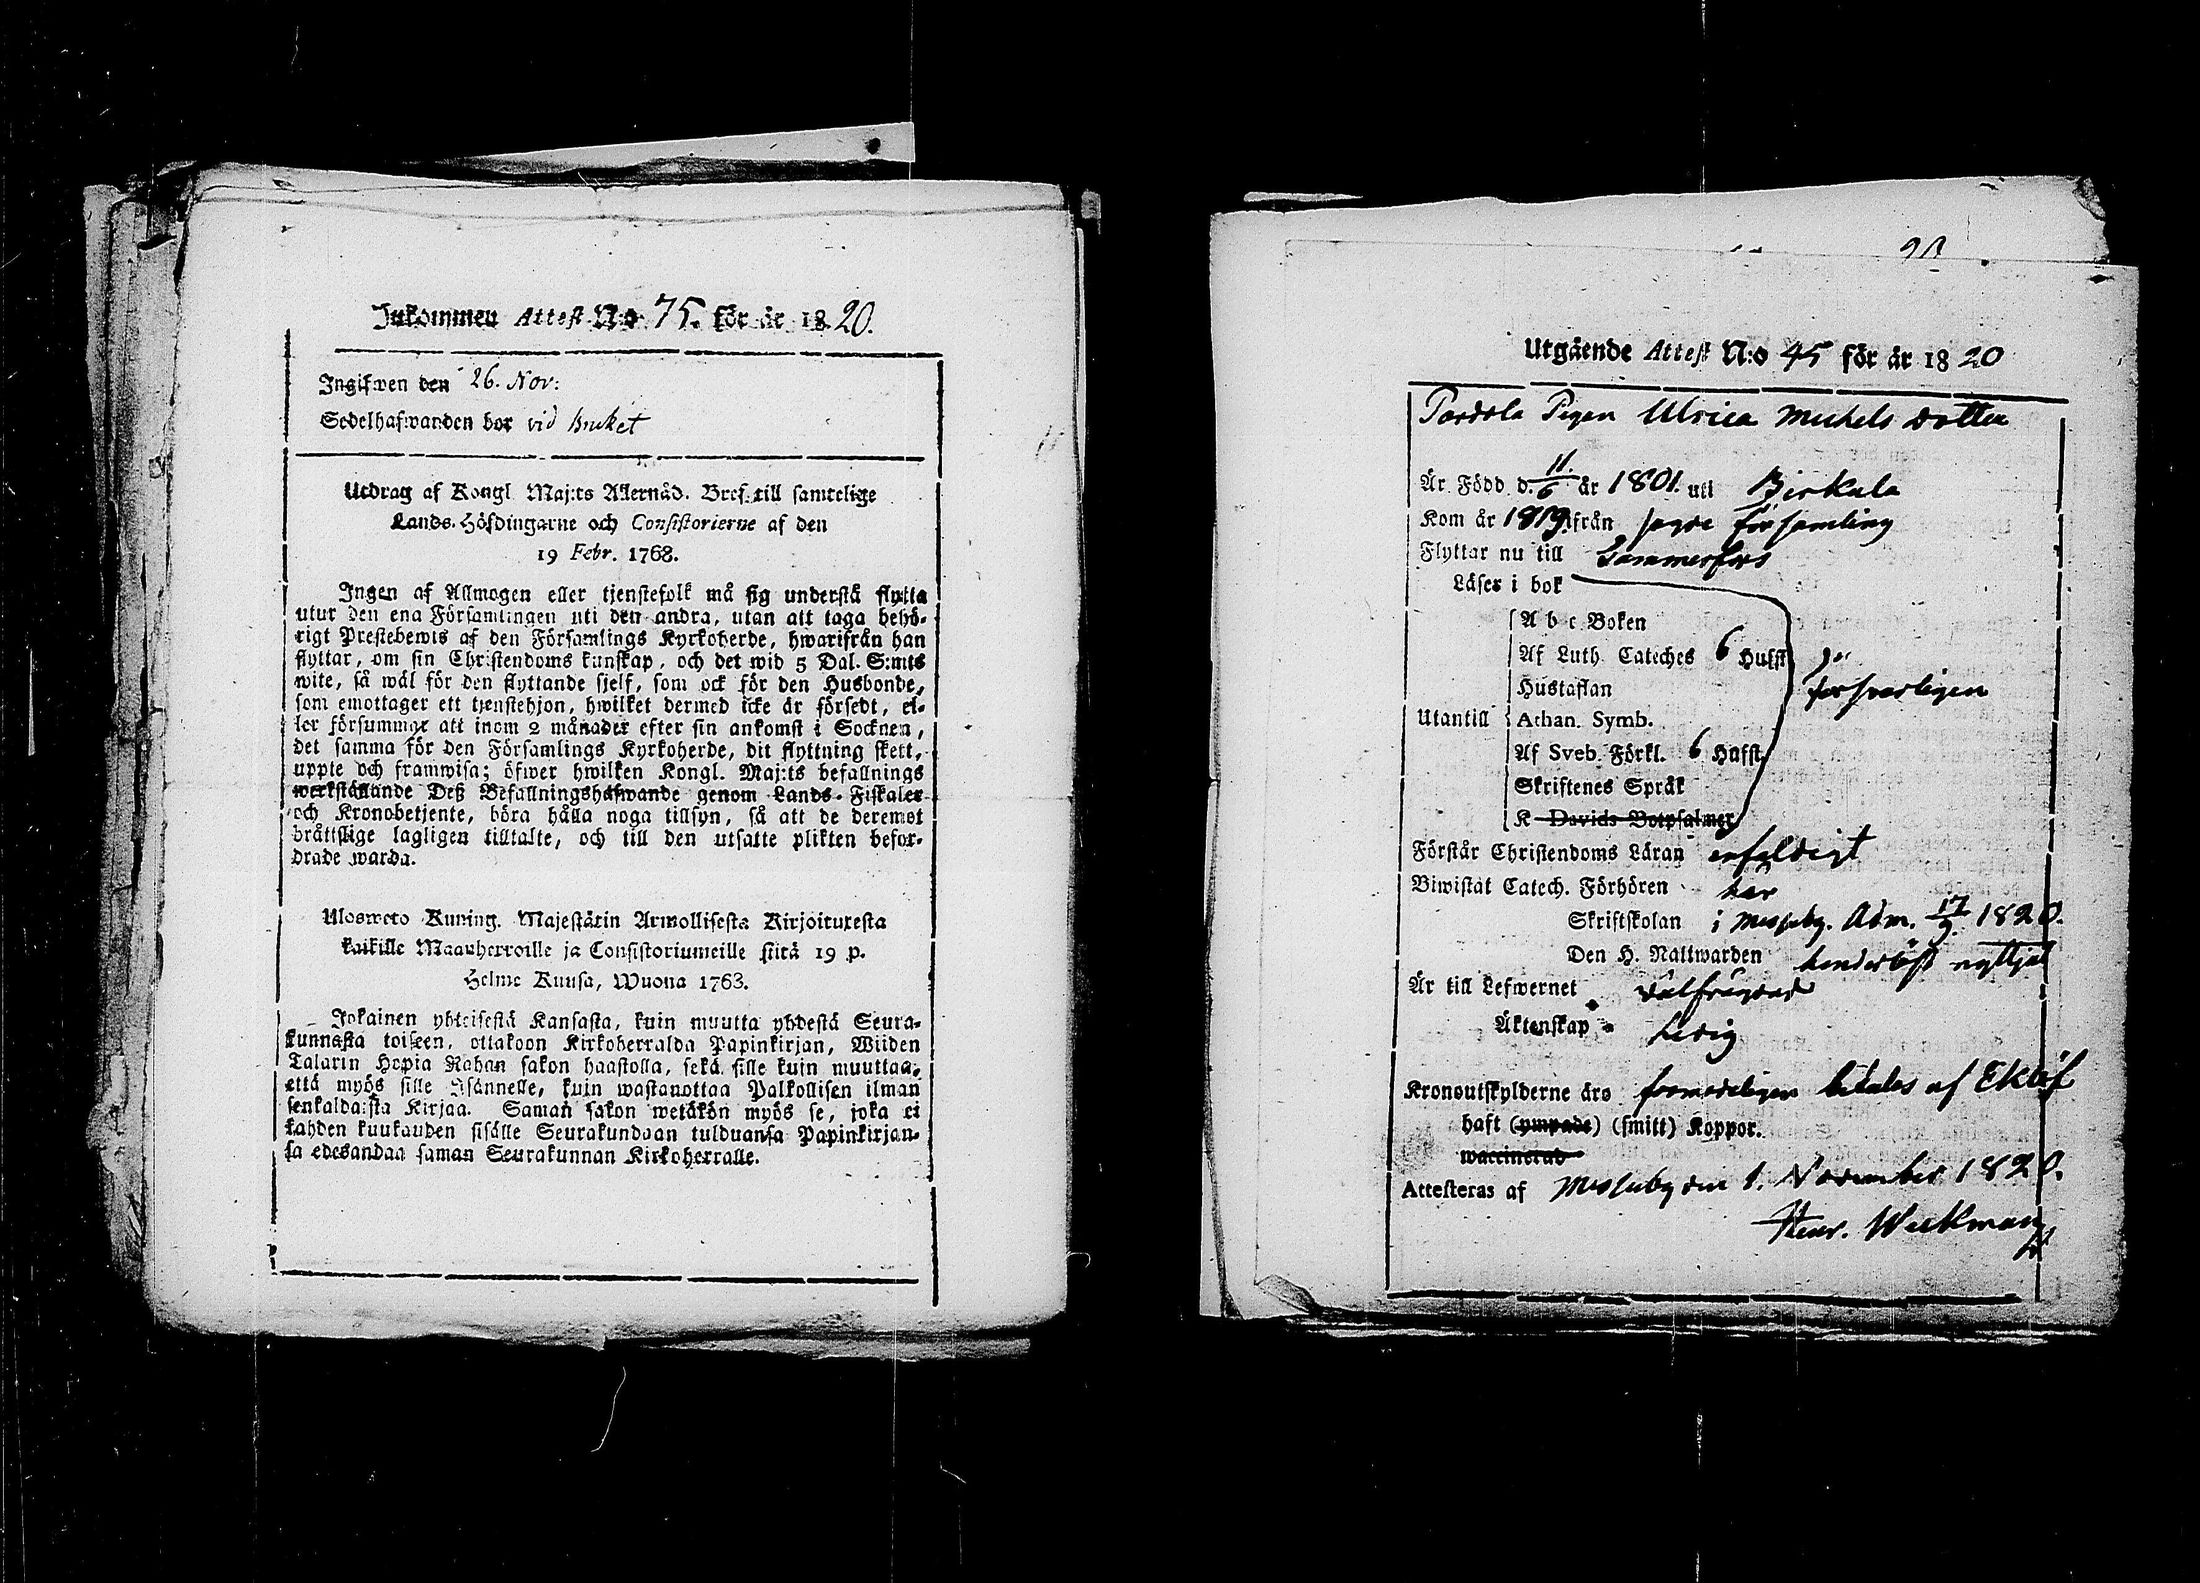 Inkommen Attest N:o 75. för år 1820.
Ingifwen den 26. Nov:
Sedelhafwanden bor vid Bruket
Utdrag af Kongl. Maj:ts Allernåd. Bref till samtelige
Lands-Höfdingarne och Consistorierne af den
19 Febr. 1768.
Ingen af Allmogen eller tjenstefolk må sig understå flytta
utur den ena Församlingen uti den andra, utan att taga behö-
rigt Prestebewis af den Församlings Kyrkoherde, hwarifrån han
flyttar, om sin Christendoms kunskap, och det wid 5 Dal. S:mts
wite, så wäl för den flyttande sjelf, som ock för den Husbonde,
som emottager ett tjenstehjon, hwilket dermed icke är försedt, el-
ler försummar att inom 2 månader efter sin ankomst i Socknen,
det samma för den Församlings Kyrkoherde, dit flyttning skett,
uppte och framwisa; öfwer hwilken Kongl. Maj:ts befallnings
werkställande Deß Befallningshafwande genom Lands-Fiskaler
och Kronobetjente, böra hålla noga tillsyn, så att de deremot
bråttslige lagligen tilltalte, och till den utsatte plikten befor-
drade warda.
Ulosweto Kuning. Majestätin Armollisesta Kirjoituxesta
kaikille Maanherroille ja Consistoriumeille siitä 19 p.
Helme Kuusa, Wuona 1763.
Jokainen yhteisestä Kansasta, kuin muutta yhdestä Seura-
kunnasta toiseen, ottakoon Kirkoherralda Papinkirjan, Wiiden
Talarin Hopia Rahan sakon haastolla, sekä sille kuin muuttaa,
että myös sille Isännelle, kuin wastanottaa Palkollisen ilman
senkaldaista Kirjaa. Saman sakon wetäkön myös se, joka ei
kahden kuukauden sisälle Seurakundaan tulduansa Papinkirjan-
sa edesandaa saman Seurakunnan Kirkoherralle.
Utgående Attest N:o 45 för år 1820
Pigan Ulrica Michels dotter
Är Född d. 11/6 år 1801. uti Birkala
Kom år 1819 ifrån sagde församling
Flyttar nu till Tammerfors
Läser i bok
A b c Boken
Af Luth. Cateches 6 Hufst
Hustaflan
försvarligen
Utantill Athan. Symb.
Af Sveb. Förkl. 6 Hufst.
Skriftenes Språk
K Davids Botpsalmer
Förstår Christendoms Läran enfaldigt
Biwistat Catech. Förhören här
Skriftskolan i Messuby. Adm. 17/9. 1820.
Den H. Nattwarden nyttjat
Är till Lefwernet välfrägdad
Äktenskap ledig
Kronoutskylderne äro framdeligen betalas af Eklöf
haft (ympade) (smitt) Koppor.
waccinerad
Attesteras af Messuby den 1. November 1820.
Henr. Weckman